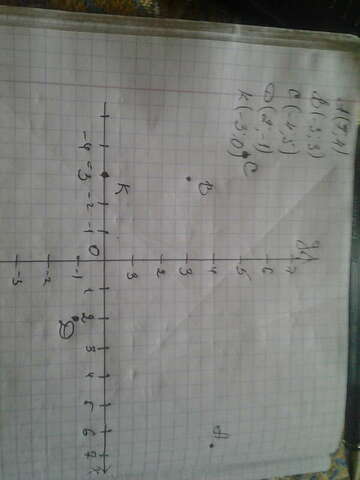 A(7;4)
B(-3;3)
C(-4;5)
D(2;-1)
K(-3;0)
y
7
6
C
5
4
A
B
3
2
K
-4 -3 -2 -1 0 1 2 3 4 5 6 7 x
-1
D
-2
-3